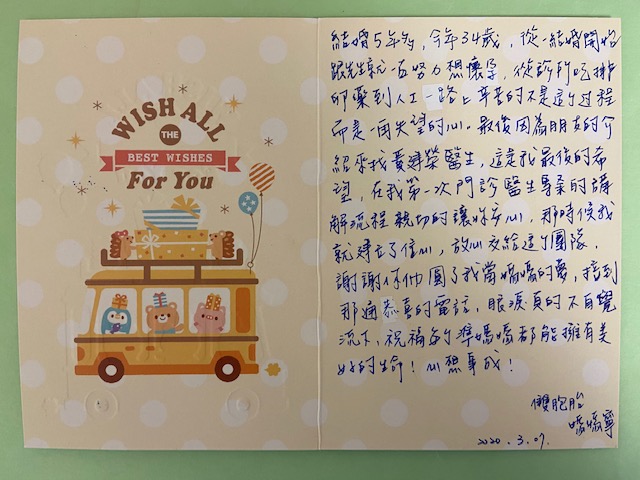 WISH ALL
THE
BEST WISHES
For You
結婚5年多,今年34歲,從一結婚開始
跟先生就一直努力想懷孕,從診所吃排
卵藥到人工一路上辛苦的不是這個過程
而是一再失望的心。最後因為朋友的介
紹來找黃建榮醫生,這是我最後的希
望,在我第一次門診醫生專業的講
解流程親切的讓妳安心,那時候我
就建立了信心,放心交給這個團隊。
謝謝你們圓了我當媽媽的夢,接到
那通恭喜的電話,眼淚真的不自覺
流下,祝福每個準媽媽都能擁有美
好的生命!心想事成!
雙胞胎
媽媽寧
2020.3.07.